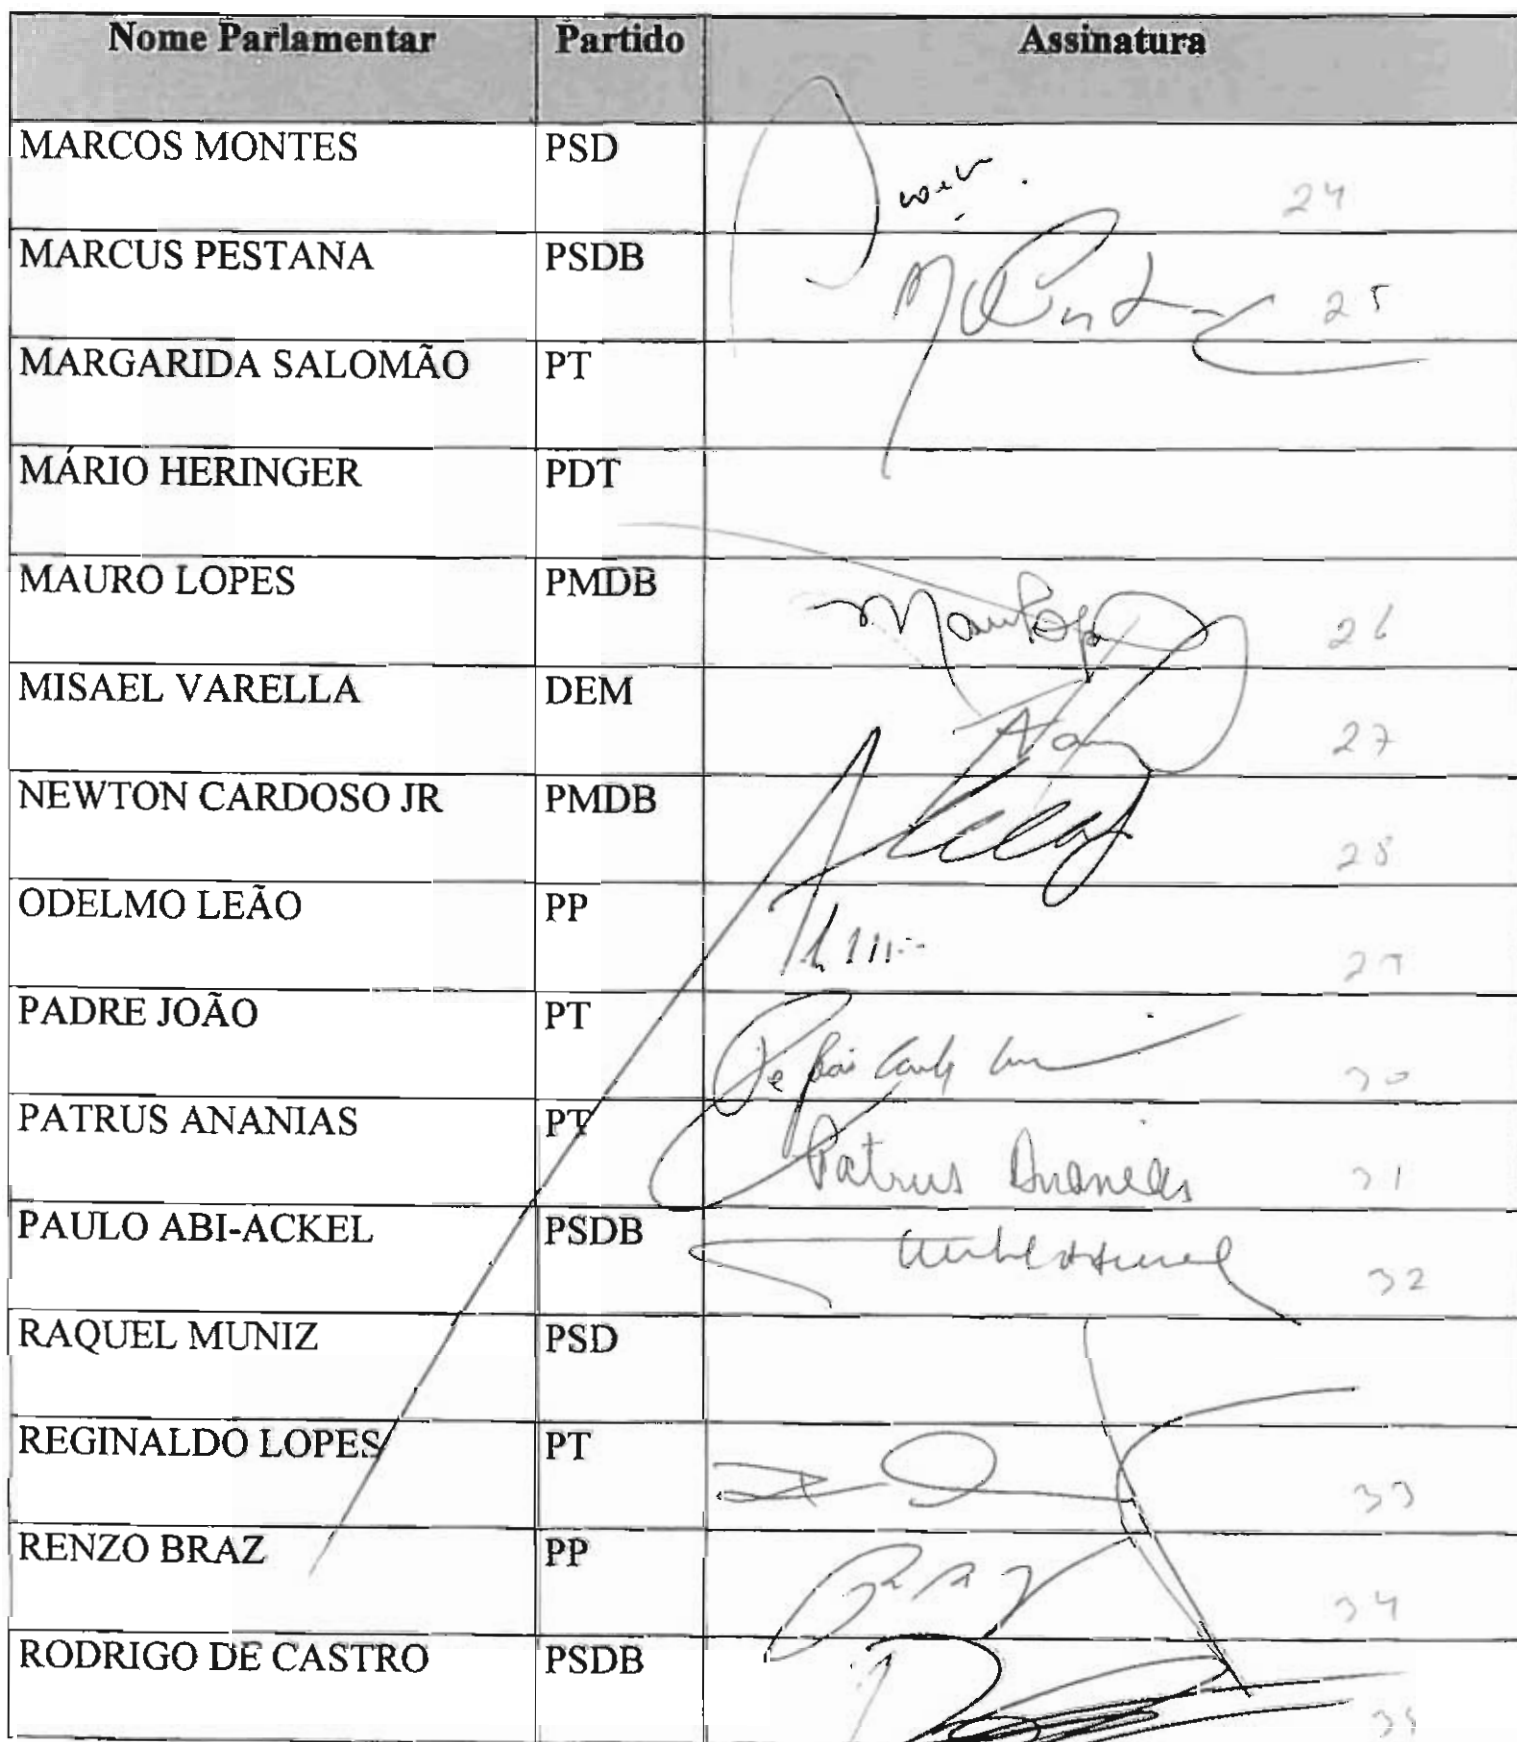 Nome Parlamentar Partido Assinatura
MARCOS MONTES PSD 24
MARCUS PESTANA PSDB 25
MARGARIDA SALOMÃO PT
MÁRIO HERINGER PDT
MAURO LOPES PMDB 26
MISAEL VARELLA DEM 27
NEWTON CARDOSO JR PMDB 28
ODELMO LEÃO PP 29
PADRE JOÃO PT 30
PATRUS ANANIAS PT Patrus Ananias 31
PAULO ABI-ACKEL PSDB 32
RAQUEL MUNIZ PSD
REGINALDO LOPES PT 33
RENZO BRAZ PP 34
RODRIGO DE CASTRO PSDB 35